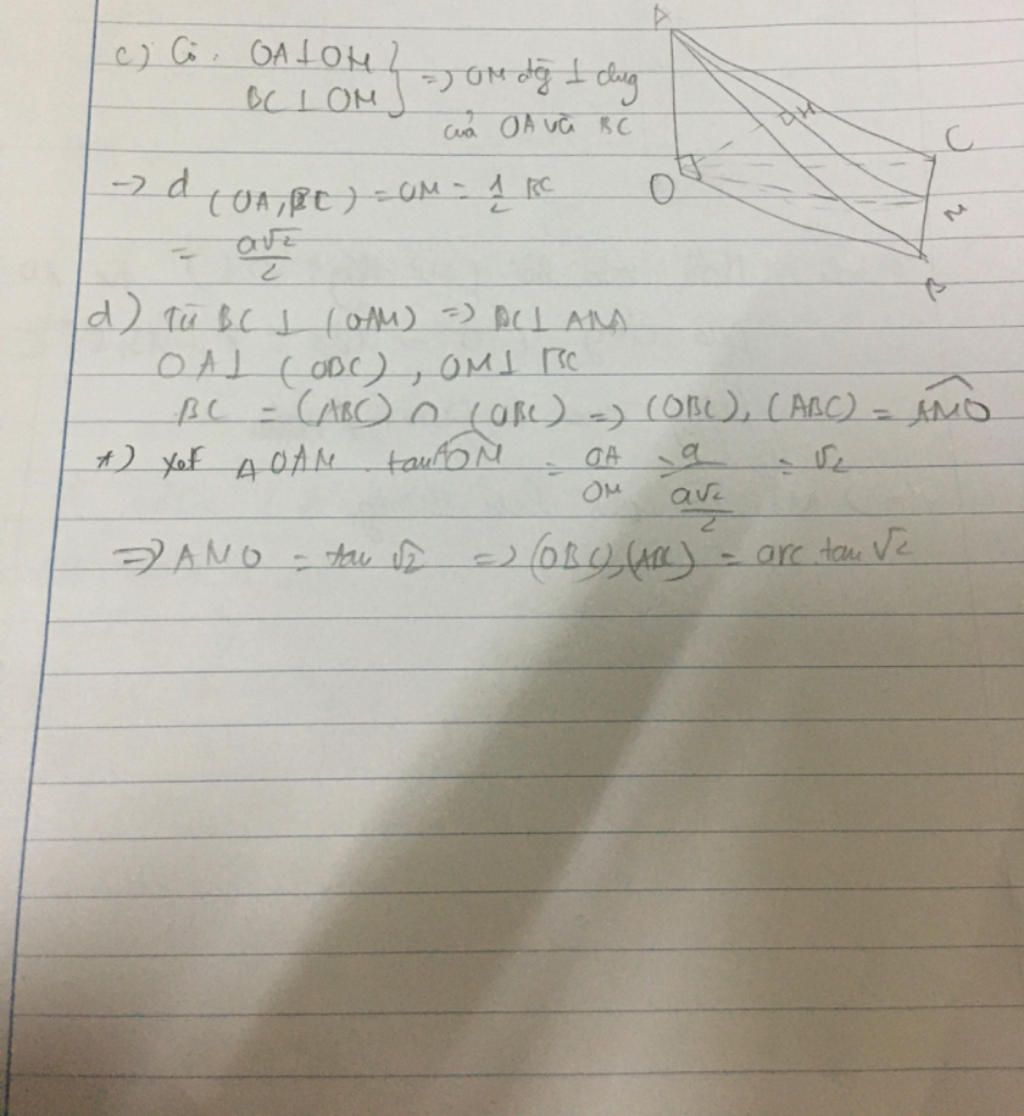 c) Có. OA ⊥ OM
BC ⊥ OM } => OM đg ⊥ chug
của OA và BC
-> d (OA, BC) = OM = 1/2 BC
= a√2/2
d) Từ BC ⊥ (OAM) => BC ⊥ AM
OA ⊥ (OBC), OM ⊥ BC
BC = (ABC) ∩ (OBC) => (OBC), (ABC) = AMO
*) xét Δ OAM. tan AOM = OA/OM = a/(a√2/2) = √2
=> AMO = tan √2 => (OBC), (ABC) = arc tan √2
A
H
C
O
M
B